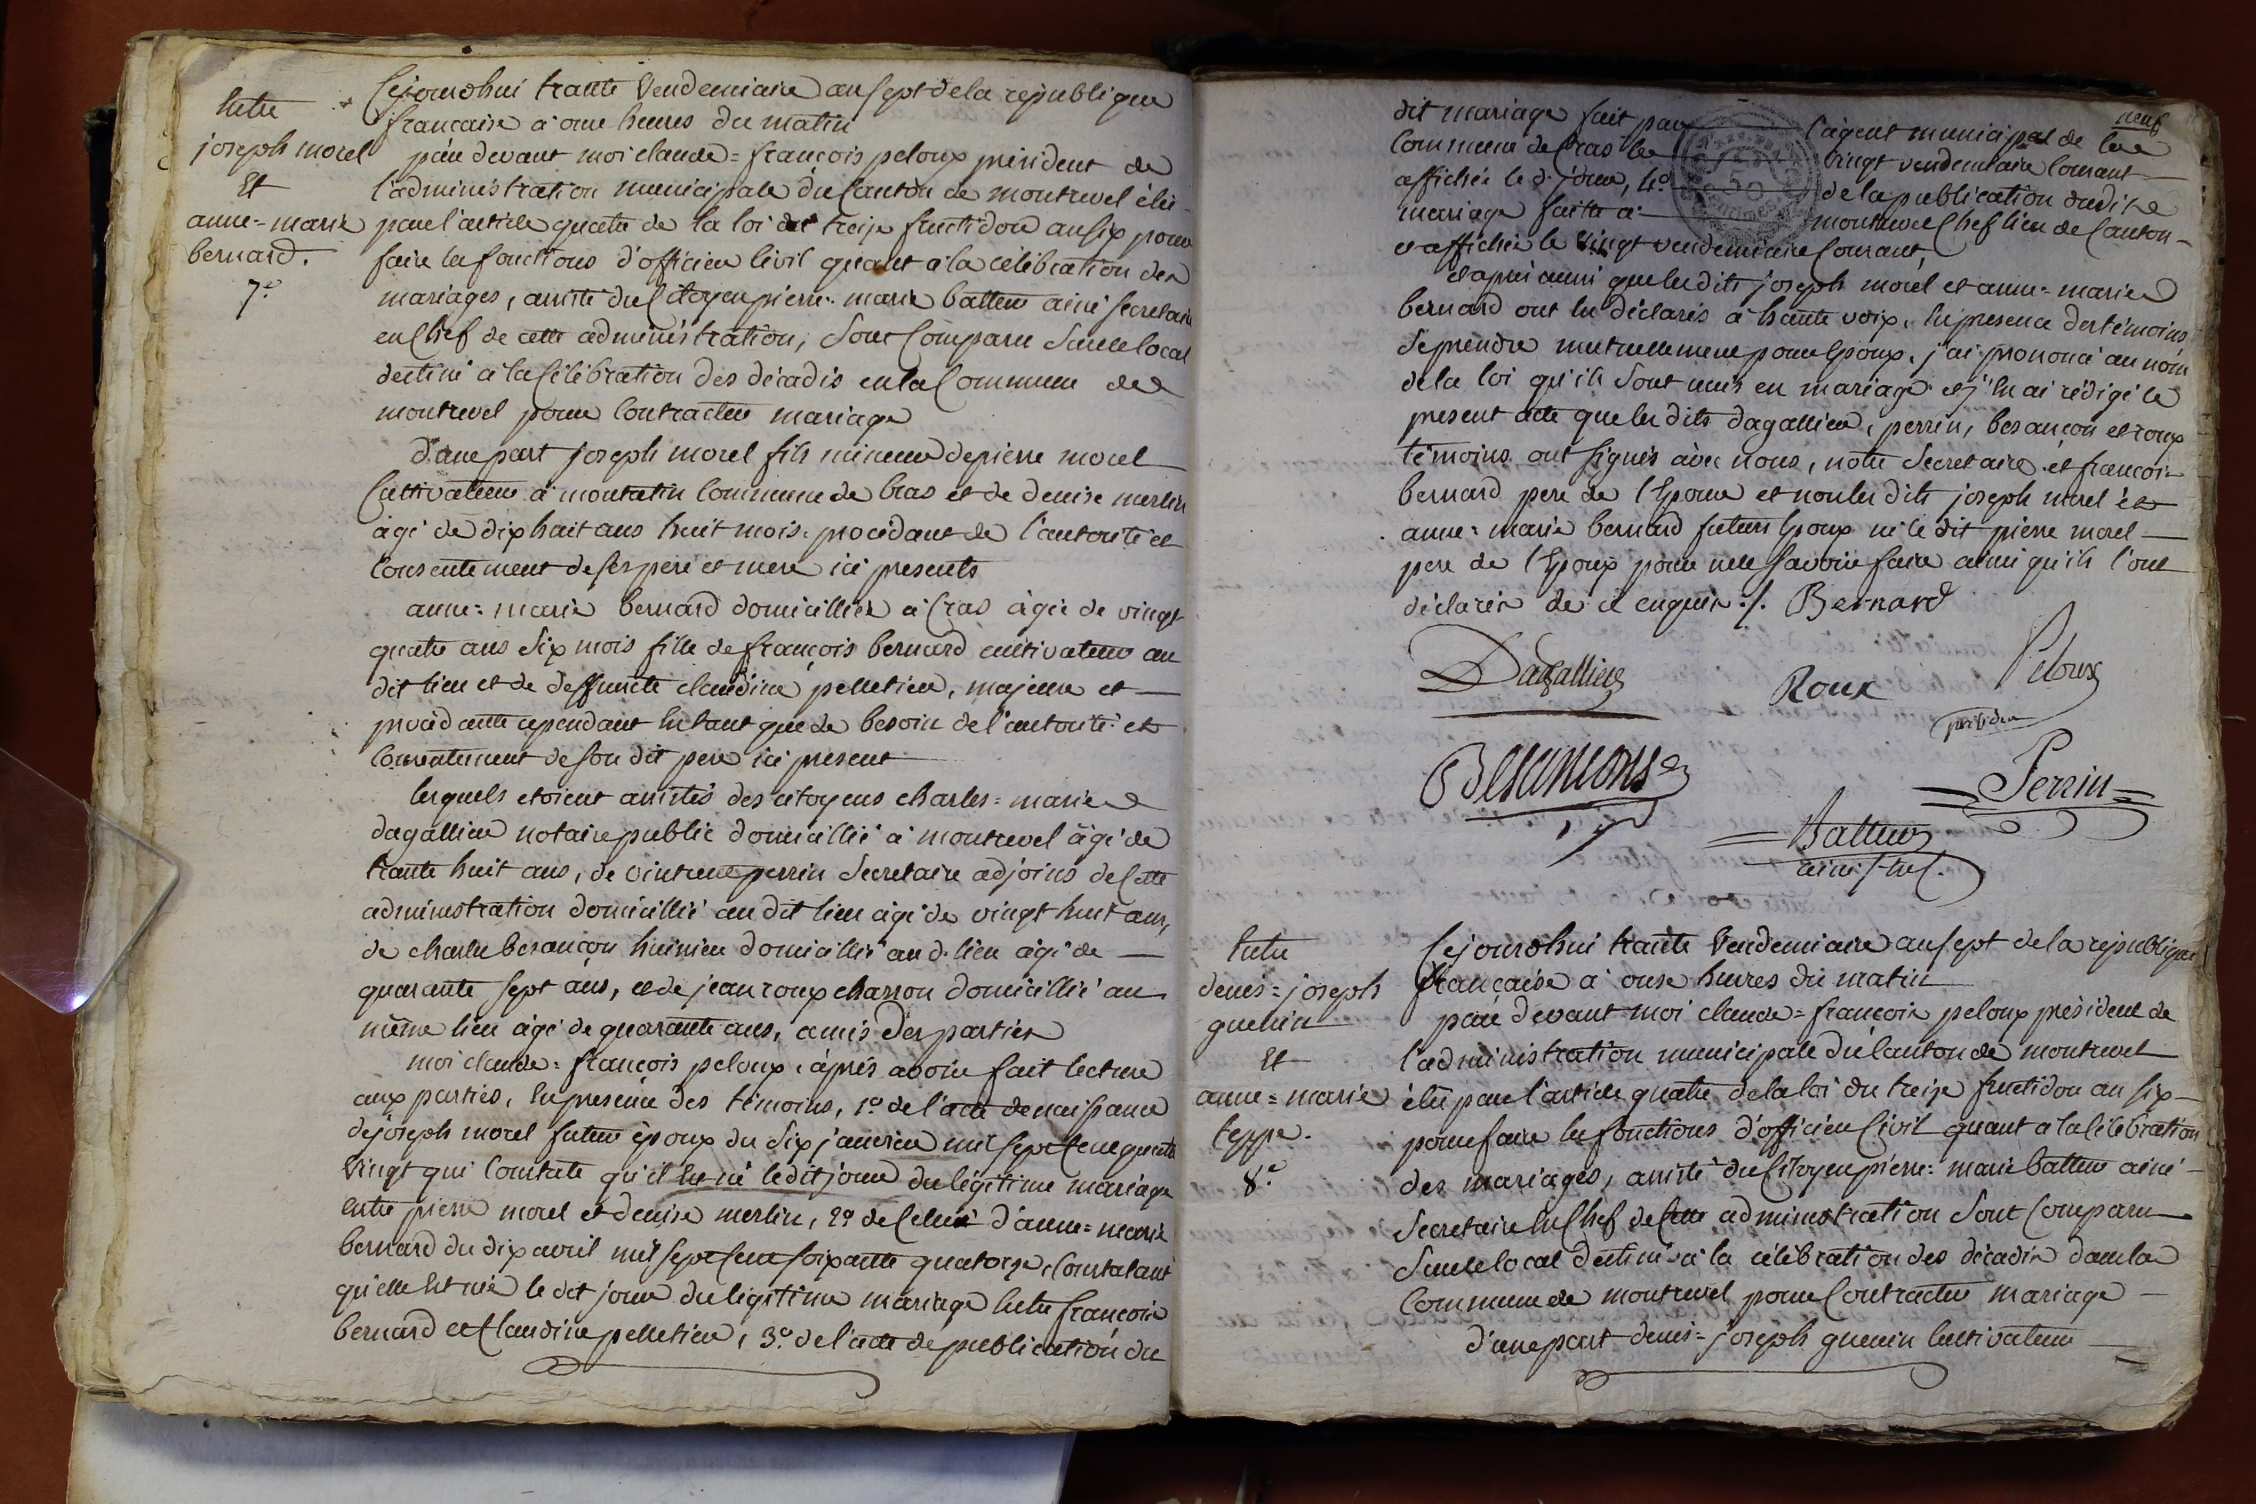 Entre
joseph morel
Et
anne=marie
bernard.
7.e
Cejourdhui trante Vendemiaire an sept de la republique
francaise à onse heures du matin
pare devant moi claude=françois peloux président de
l'administration municipale du Canton de montrevel élu
par l'article quatre de la loi du treize fructidor an six pour
faire les fonctions d'officier Civil quant à la célébration des
mariages, assisté du Citoyen pierre-marie batteur ainé secretaire
en Chef de cette administration, Sont Comparu Sur le local
destiné à la Célébration des décadis en la Commune de
montrevel pour Contracter mariage
d'une part joseph morel fils mineur de pierre morel
Cultivateur à montatin Commune de Cras et de denise merlin
âgé de dix huit ans huit mois, procédant de l'autorité et
Consentement de ses pere et mere ici presents
anne=marie bernard domicilliée à Cras âgée de vingt
quatre ans Six mois fille de françois bernard cultivateur au
dit lieu et de deffuncte claudine pelletier, majeure et
procédante cependant En tant que de besoin de l'autorité et
Consentement de son dit pere ici present
lesquels etoient assistés des citoyens charles=marie
dagallier notaire public domicillié à montrevel âgé de
trante huit ans, de vincent perrin Secretaire adjoins de Cette
administration domicillié au dit lieu âgé de vingt huit ans,
de charles besançon huissier domicillié au d. lieu âgé de
quarante sept ans, et de jean roux charron domicillié au
même lieu âgé de quarante ans, amis des parties
moi claude=françois peloux, après avoir fait lecture
aux parties, En presence des témoins, 1.o de l'acte de naissance
de joseph morel futur époux du Six janvier mil sept Cent quatre
Vingt qui Constate qu'il Est né ledit jour du légitime mariage
entre pierre morel et denise merlin, 2.o de Celui d'anne=marie
bernard du dix avril mil sept Cent soixante quatorze, Constatant
qu'elle Est née le dit jour du légitime mariage Entre françois
bernard et Claudine pelletier, 3.o de l'acte de publication du
neuf
dit mariage fait par l'agent municipal de la
Commune de Cras le vingt vendemiaire Courant
affichée le d. jour, 4.o de la publication dudit
mariage faitte à montrevel Chef lieu de Canton
et affichée le Vingt vendemiaire Courant,
d'après aussi que les dits joseph morel et anne=marie
bernard ont Eu déclarés à haute voix, En presence des témoins
Se prendre mutuellement pour Epoux, j'ai prononcé au nom
de la loi qu'ils Sont unis en mariage et j'En ai rédigé le
present acte que les dits dagallier, perrin, besançon et roux
témoins ont signés avec nous, notre Secretaire, et françois
bernard pere de l'Epouse et non les dits joseph morel et
anne=marie bernard futurs Epoux ni le dit pierre morel
pere de l'Epoux pour ne le savoir faire ainsi qu'ils l'ont
déclarés de ce enquis ./. Bernard
Dagallier
Roux
Peloux
président
Besancons
Perrin
Batteur
ainé s. en C.
Entre
denis=joseph
guenin
Et
anne=marie
teppe.
8.e
Cejourdhui trante Vendemiaire an sept de la republique
française à onse heures du matin
paré devant moi claude=françois peloux président de
l'administration municipale du Canton de montrevel
élu par l'article quatre de la loi du treize fructidor an six
pour faire les fonctions d'officier Civil quant à la Célébration
des mariages, assisté du Citoyen pierre=marie batteur ainé
Secretaire En Chef de Cette administration Sont Comparu
Sur le local destiné à la célébration des décadis dans la
Commune de montrevel pour Contracter mariage
d'une part denis=joseph guenin Cultivateur